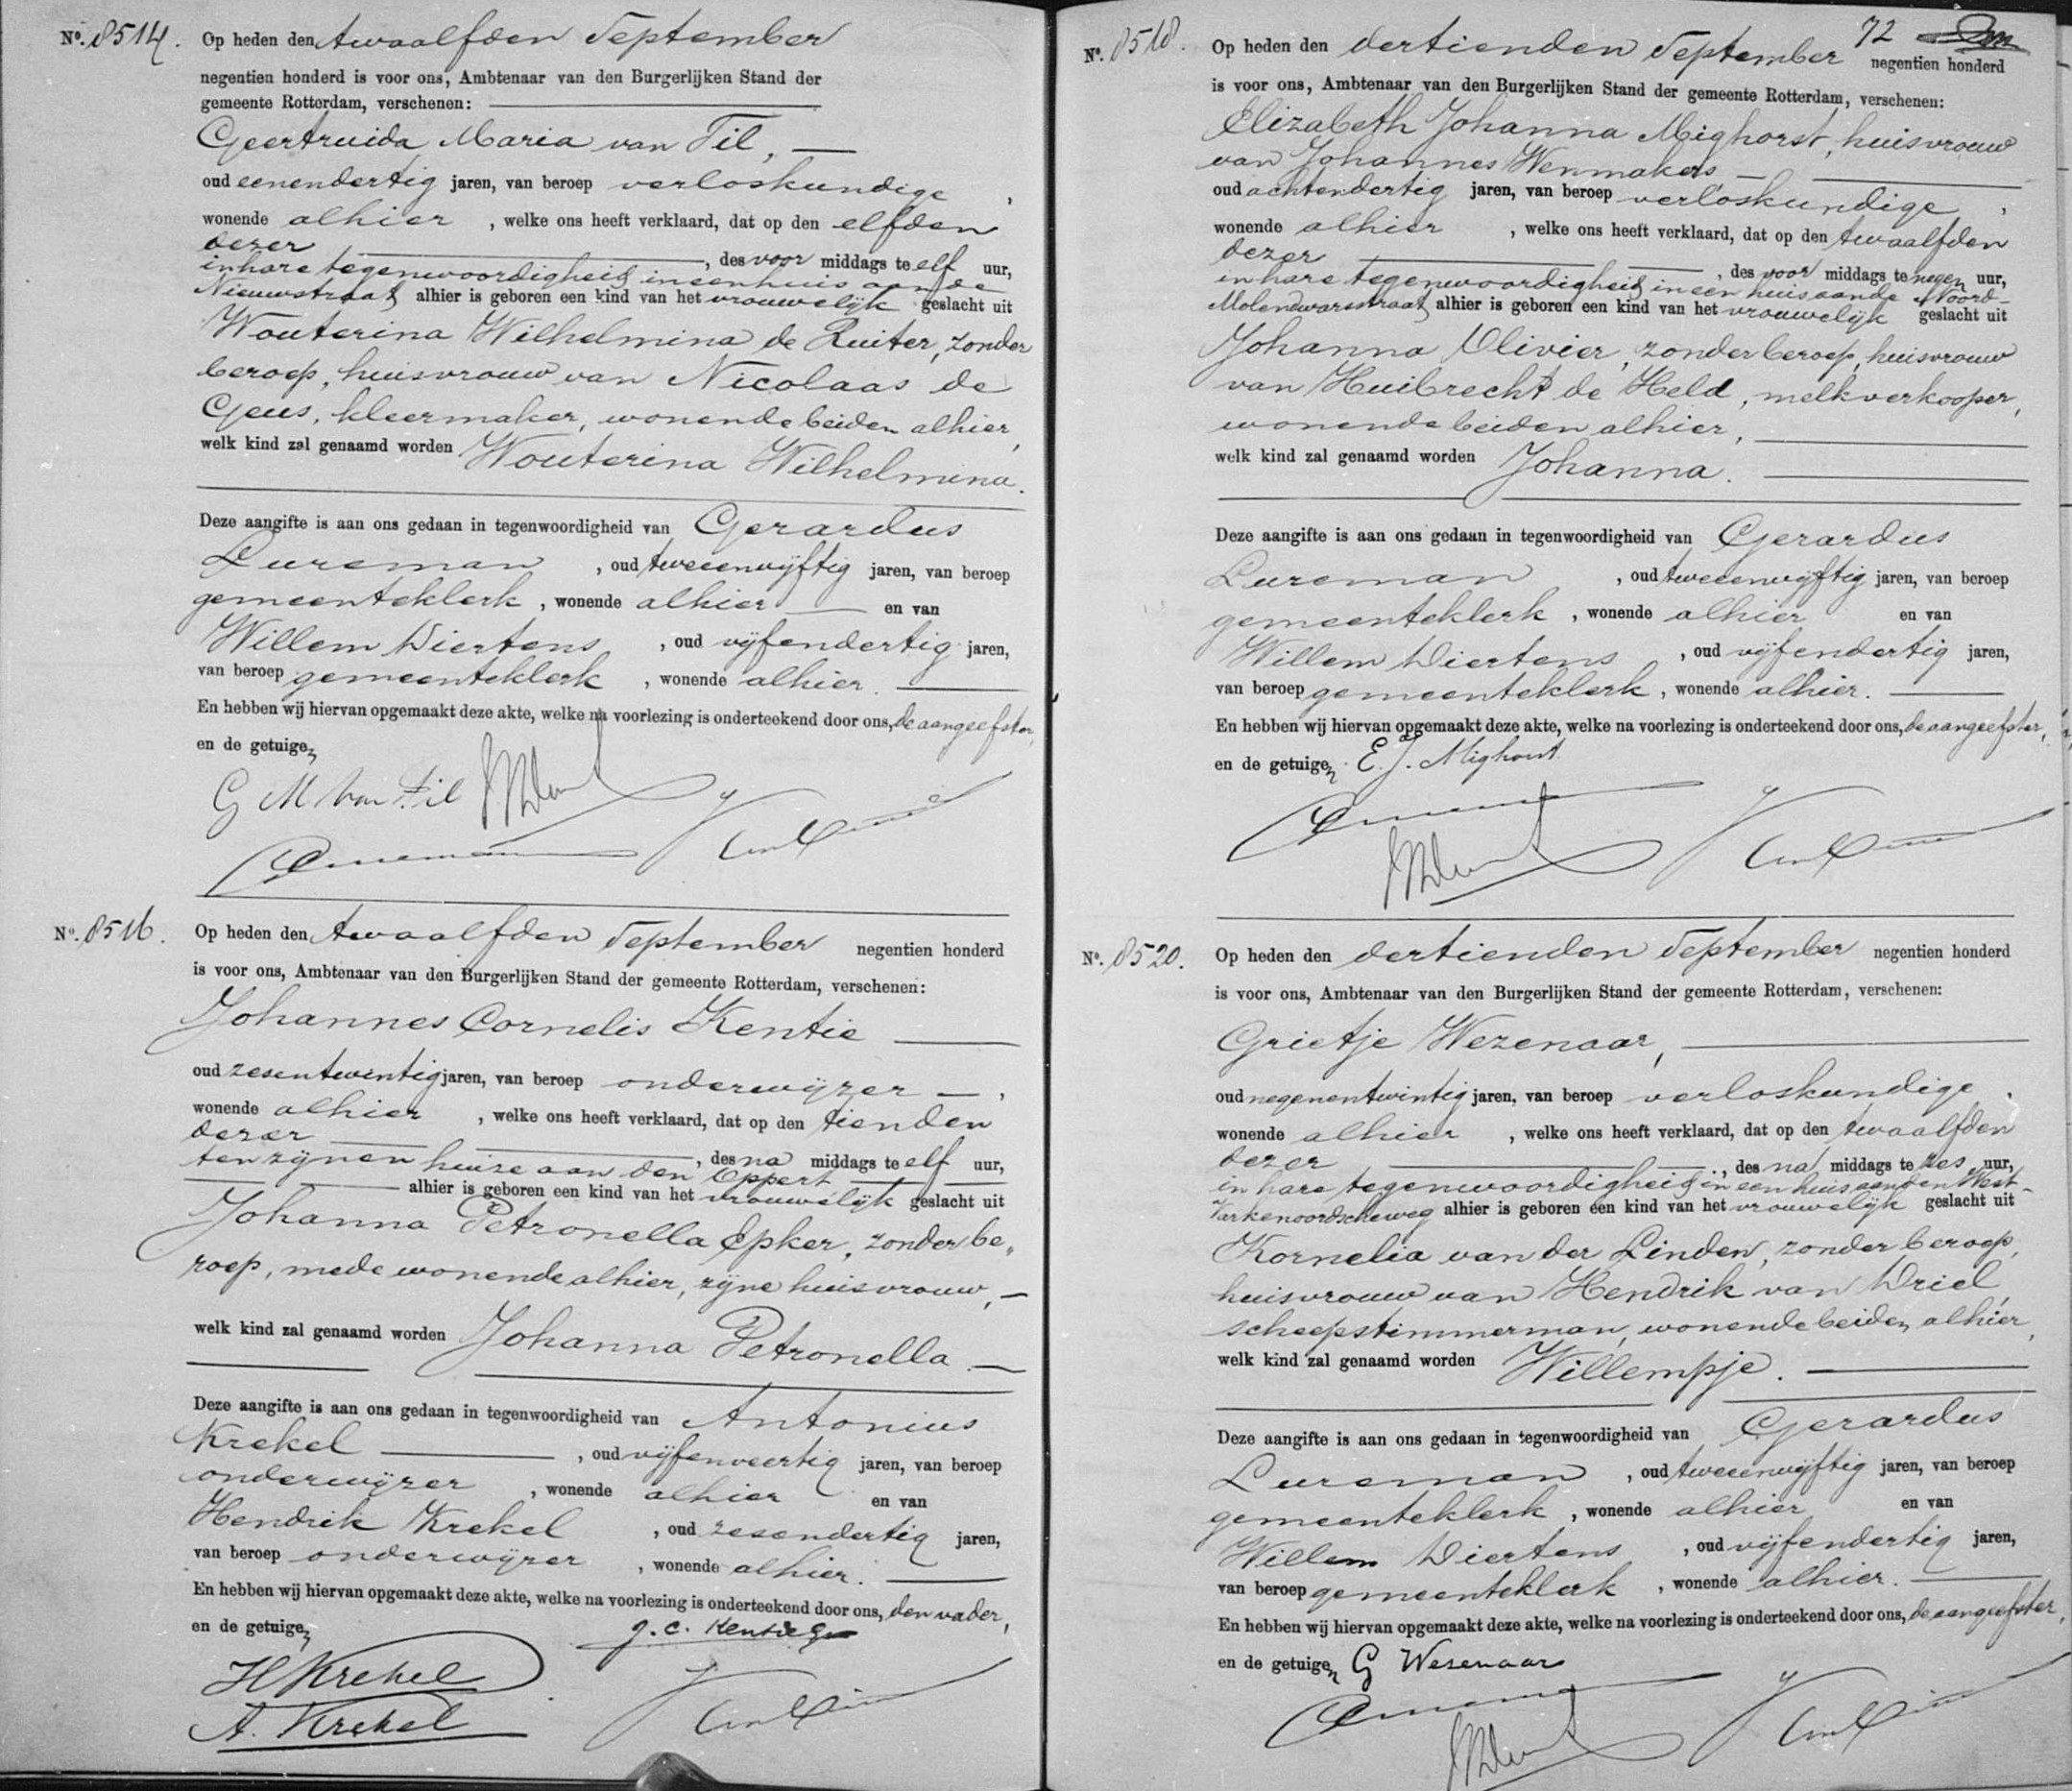 No. 8514. Op heden den twaalfden September
negentien honderd is voor ons, Ambtenaar van den Burgerlijken Stand der
gemeente Rotterdam, verschenen:
Geertruida Maria van Til,
oud eenendertig jaren, van beroep verloskundige,
wonende alhier, welke ons heeft verklaard, dat op den elfden
dezer, des voor middags te elf uur,
in hare tegenwoordigheid in een huis aan de
Nieuwstraat alhier is geboren een kind van het vrouwelijk geslacht uit
Wouterina Wilhelmina de Ruiter, zonder
beroep, huisvrouw van Nicolaas de
Geus, kleermaker, wonende beiden alhier,
welk kind zal genaamd worden Wouterina Wilhelmina.
Deze aangifte is aan ons gedaan in tegenwoordigheid van Gerardus
Lureman, oud tweeenvijftig jaren, van beroep
gemeenteklerk, wonende alhier en van
Willem Diertens, oud vijfendertig jaren,
van beroep gemeenteklerk, wonende alhier.
En hebben wij hiervan opgemaakt deze akte, welke na voorlezing is onderteekend door ons, de aangeefster,
en de getuigen
G M van Til
No. 8516. Op heden den twaalfden September negentien honderd
is voor ons, Ambtenaar van den Burgerlijken Stand der gemeente Rotterdam, verschenen:
Johannes Cornelis Kentie
oud zesentwintig jaren, van beroep onderwijzer,
wonende alhier, welke ons heeft verklaard, dat op den tienden
dezer, des na middags te elf uur,
ten zijnen huize aan den Oppert
alhier is geboren een kind van het vrouwelijk geslacht uit
Johanna Petronella Epker, zonder be„
roep, mede wonende alhier, zijne huisvrouw,
welk kind zal genaamd worden Johanna Petronella.
Deze aangifte is aan ons gedaan in tegenwoordigheid van Antonius
Krekel, oud vijfenveertig jaren, van beroep
onderwijzer, wonende alhier en van
Hendrik Krekel, oud zesendertig jaren,
van beroep onderwijzer, wonende alhier.
En hebben wij hiervan opgemaakt deze akte, welke na voorlezing is onderteekend door ons, den vader,
en de getuigen
J. C. Kentie
H Krekel
A. Krekel
72
No. 8518. Op heden den dertienden September negentien honderd
is voor ons, Ambtenaar van den Burgerlijken Stand der gemeente Rotterdam, verschenen:
Elizabeth Johanna Mighorst, huisvrouw
van Johannes Wenmakers,
oud achtendertig jaren, van beroep verloskundige,
wonende alhier, welke ons heeft verklaard, dat op den twaalfden
dezer, des voor middags te negen uur,
in hare tegenwoordigheid in een huis aan de Noord-
Molenwarsstraat alhier is geboren een kind van het vrouwelijk geslacht uit
Johanna Olivier, zonder beroep, huisvrouw
van Huibrecht de Held, melkverkooper,
wonende beiden alhier,
welk kind zal genaamd worden Johanna.
Deze aangifte is aan ons gedaan in tegenwoordigheid van Gerardus
Lureman, oud tweeenvijftig jaren, van beroep
gemeenteklerk, wonende alhier en van
Willem Diertens, oud vijfendertig jaren,
van beroep gemeenteklerk, wonende alhier.
En hebben wij hiervan opgemaakt deze akte, welke na voorlezing is onderteekend door ons, de aangeefster,
en de getuigen. E. J. Mighorst
No. 8520. Op heden den dertienden September negentien honderd
is voor ons, Ambtenaar van den Burgerlijken Stand der gemeente Rotterdam, verschenen:
Grietje Wezenaar,
oud negenentwintig jaren, van beroep verloskundige,
wonende alhier, welke ons heeft verklaard, dat op den twaalfden
dezer, des na middags te zes uur,
in hare tegenwoordigheid in een huis aan den West-
Varkenoordscheweg alhier is geboren een kind van het vrouwelijk geslacht uit
Kornelia van der Linden, zonder beroep,
huisvrouw van Hendrik van Driel,
scheepstimmerman, wonende beiden alhier,
welk kind zal genaamd worden Willempje.
Deze aangifte is aan ons gedaan in tegenwoordigheid van Gerardus
Lureman, oud tweeenvijftig jaren, van beroep
gemeenteklerk, wonende alhier en van
Willem Diertens, oud vijfendertig jaren,
van beroep gemeenteklerk, wonende alhier.
En hebben wij hiervan opgemaakt deze akte, welke na voorlezing is onderteekend door ons, de aangeefster,
en de getuigen G Wesenaar